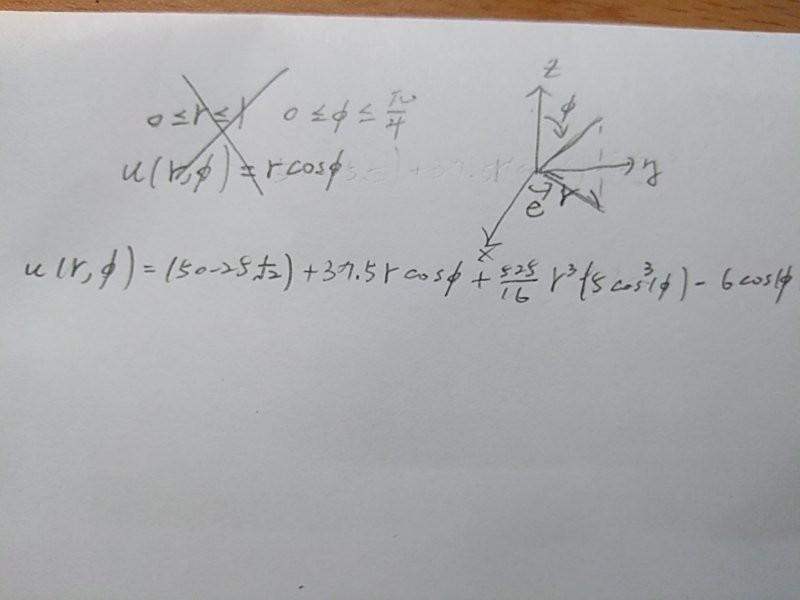 0 ≤ r ≤ 1 0 ≤ ϕ ≤ π/4
u(r,ϕ) = r cosϕ
z
ϕ
y
e r
x
u(r,ϕ) = (50-25 1/√2) + 37.5 r cosϕ + 525/16 r³(5 cos³(ϕ) - 6 cos(ϕ